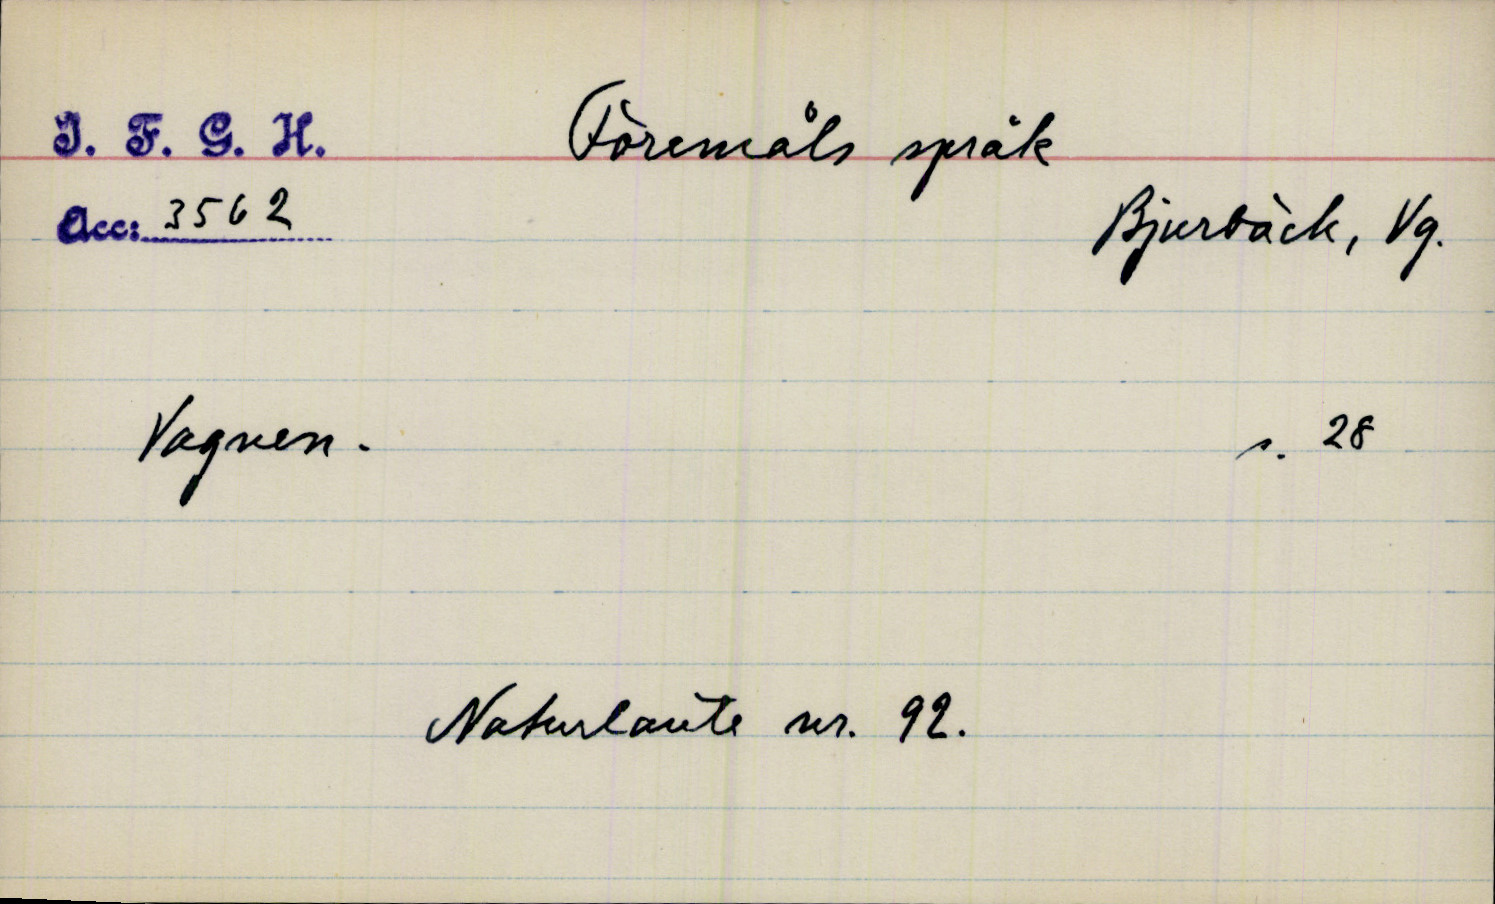 I. F. G. H.
Föremåls språk
Acc: 3562
Bjurbäck, Vg.
Vagnen.
s. 28
Naturlaute nr. 92.